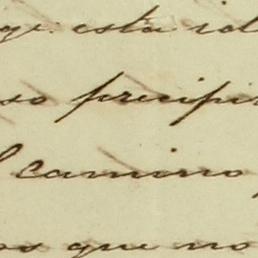 esta
so precipi
camino,
os que no